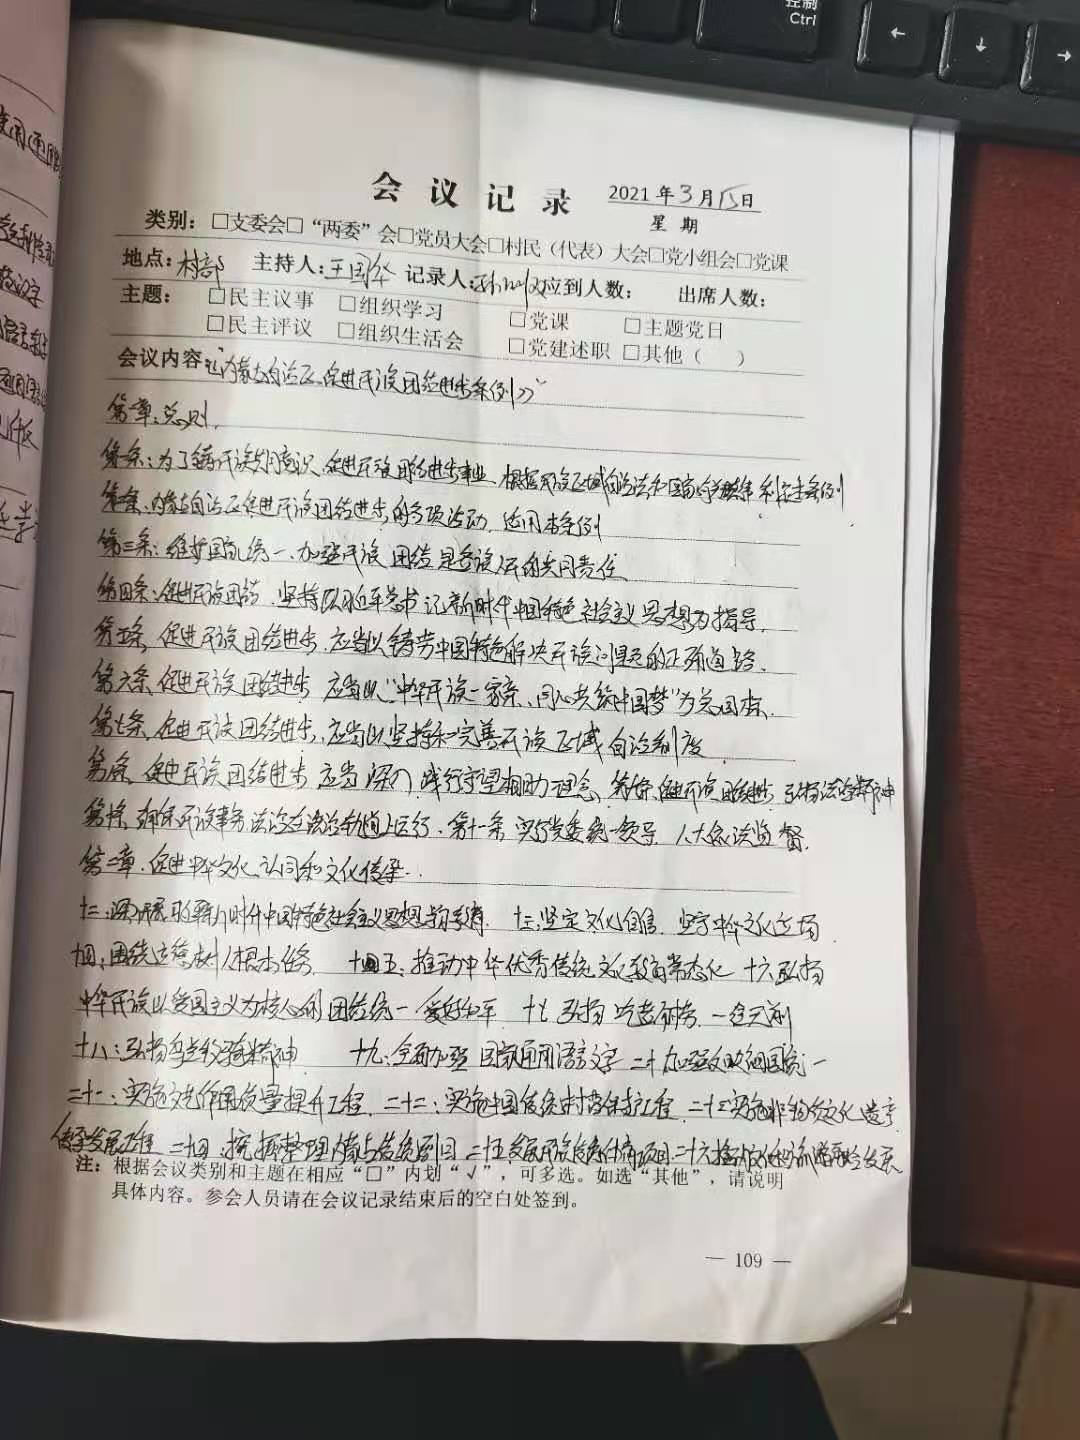 控制
Ctrl
会议记录 2021年3月15日
星期
类别：□支委会□“两委”会□党员大会□村民（代表）大会□党小组会□党课
地点：村部 主持人：王国华 记录人： 应到人数： 出席人数：
主题： □民主议事 □组织学习 □党课 □主题党日
□民主评议 □组织生活会 □党建述职 □其他（ ）
会议内容：《内蒙古自治区促进民族团结进步条例》
第一章：总则
第一条：为了铸牢民族共同意识、促进民族团结进步事业、根据民族区域自治法和国家有关法律 制定本条例
第二条、内蒙古自治区促进民族团结进步的各项活动，适用本条例
第三条：维护国家统一、加强民族团结是各族人民的共同责任
第四条：促进民族团结，坚持以习近平总书记新时代中国特色社会主义思想为指导，
第五条，促进民族团结进步，应当以铸劳中国特色解决民族问题的正确道路、
第六条、促进民族团结进步 应当以“中华民族一家亲、同心共筑中国梦”为总目标，
第七条、促进民族团结进步，应当以坚持和完善民族区域自治制度
第八条、促进民族团结进步 应当深入践行守望相助理念、第九条、促进民族团结进步 弘扬法治精神
第十条、确保民族事务法治在法治轨道上运行、第十一条 实行党委统一领导 人大依法监督，
第二章、促进中华文化认同和文化传承
十二：深入开展习近平新时代中国特色社会主义思想 教育 十三：坚定文化自信，坚守中华文化立场
十四、围绕立德树人根本任务 十五：推动中华优秀传统文化教育常态化 十六弘扬
中华民族以爱国主义为核心的团结统一 爱好和平 十七 弘扬吃苦耐劳、一往无前
十八：弘扬乌兰牧骑精神 十九：全面加强国家通用语言文字 二十加强 国统一
二十一：实施文艺作品质量提升工程 二十二：实施中国传统村落保护工程 二十三实施非物质文化遗产
传承发展工程 二十四：挖掘整理内蒙古传统剧目 二十五发展民族传统体育项目 二十六推动文化和旅游融合发展
注：根据会议类别和主题在相应“□”内划“√”，可多选。如选“其他”，请说明
具体内容。参会人员请在会议记录结束后的空白处签到。
— 109 —